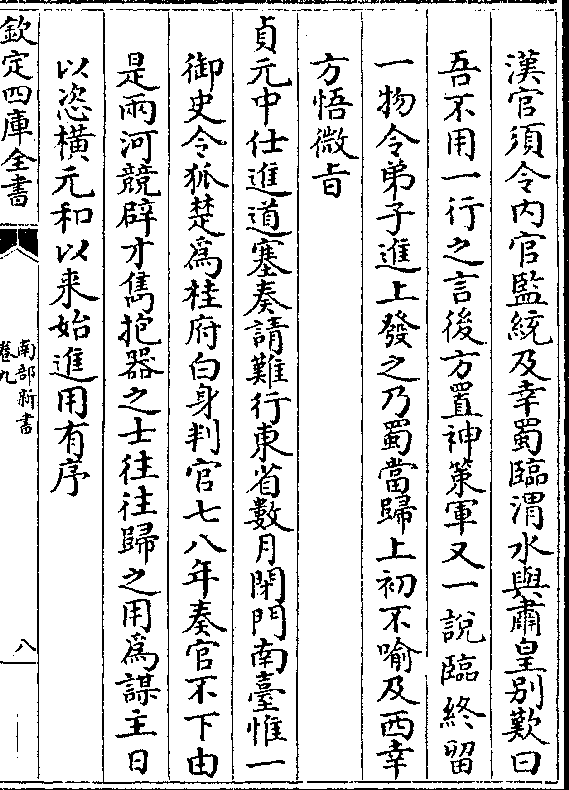 漢官須令内官監統及幸蜀臨渭水與肅皇别歎曰
吾不用一行之言後方置神策軍又一說臨終留
一物令弟子進上發之乃蜀當歸上初不喻及西幸
方悟微旨
貞元中仕進道塞奏請難行東省數月閉門南臺惟一
御史令狐楚爲桂府白身判官七八年奏官不下由
是兩河競辟才雋抱器之士往往歸之用爲謀主日
以恣横元和以来始進用有序
欽定四庫全書
南部新書
卷九
八